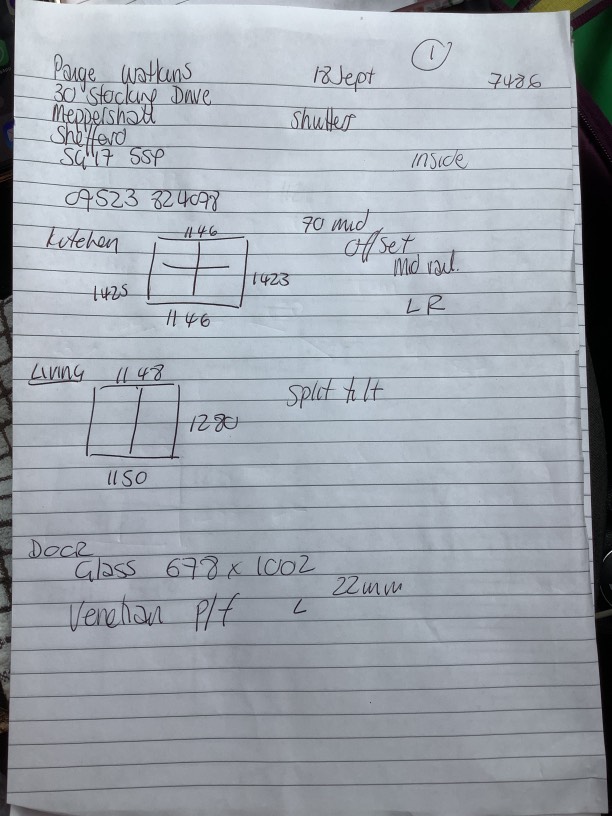 1
Paige Watkins 18 Sept 7486
30 Stocking Drive
Meppershall Shutters
Shefford
SG17 5SP inside
07523 824098
Kitchen 1146 70 mid
Offset
Mid rail.
1425 1423
1146 LR
Living 1148
Split tilt
1280
1150
DOOR
Glass 678 x 1002
22mm
Venetian P/f L